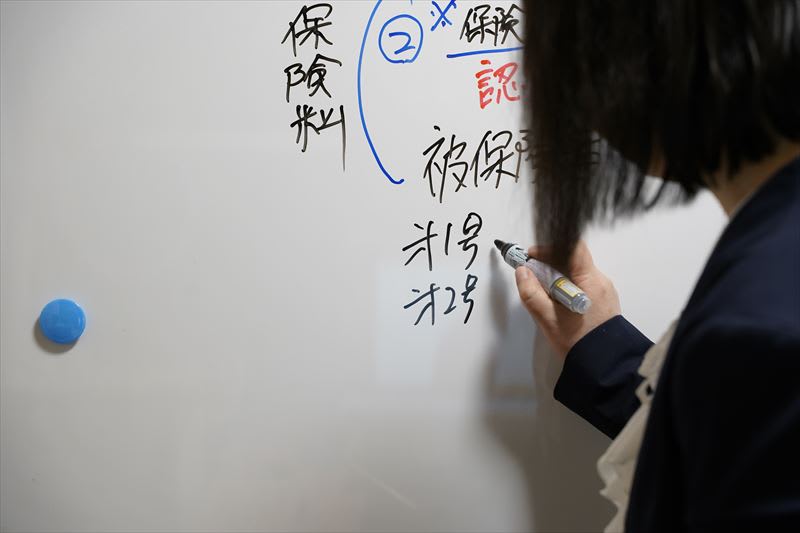 保険料
② ※ 保険
認
被保険
㐧1号
㐧2号